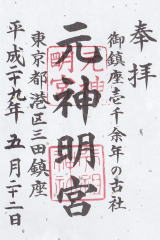 奉拝
御鎮座壱千余年の古社
元神明宮
東京都港区三田鎮座
平成二十九年五月二十二日